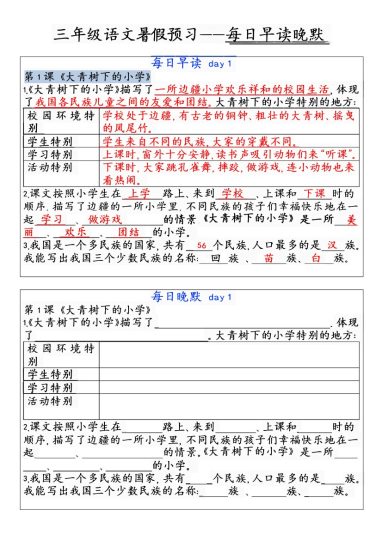 三年级语文暑假预习——每日早读晚默
每日早读 day1
第1课《大青树下的小学》
1.《大青树下的小学》描写了一所边疆小学欢乐祥和的校园生活,体现
了我国各民族儿童之间的友爱和团结。大青树下的小学特别的地方:
校园环境特别 学校处于边疆,有古老的铜钟、粗壮的大青树、摇曳的凤尾竹。
学生特别 学生来自不同的民族,大家的穿戴不同。
学习特别 上课时,窗外十分安静,读书声吸引动物们来“听课”。
活动特别 下课时,大家跳孔雀舞,摔跤,做游戏,连小动物也来看热闹。
2.课文按照小学生在 上学 路上、来到 学校 、上课和 下课 时的
顺序,描写了边疆的一所小学里,不同民族的孩子们幸福快乐地在一
起 学习 、 做游戏 的情景。《大青树下的小学》是一所 美
丽 、 欢乐 、 团结 的小学。
3.我国是一个多民族的国家,共有 56 个民族,人口最多的是 汉 族。
我能写出我国三个少数民族的名称: 回 族、 苗 族、 白 族。
每日晚默 day1
第1课《大青树下的小学》
1.《大青树下的小学》描写了____________________,体现
了____________________。大青树下的小学特别的地方:
校园环境特别
学生特别
学习特别
活动特别
2.课文按照小学生在______路上、来到______、上课和______时的
顺序,描写了边疆的一所小学里,不同民族的孩子们幸福快乐地在一
起______、____________的情景。《大青树下的小学》是一所____
____、______、______的小学。
3.我国是一个多民族的国家,共有____个民族,人口最多的是____族。
我能写出我国三个少数民族的名称:____族、____族、____族。